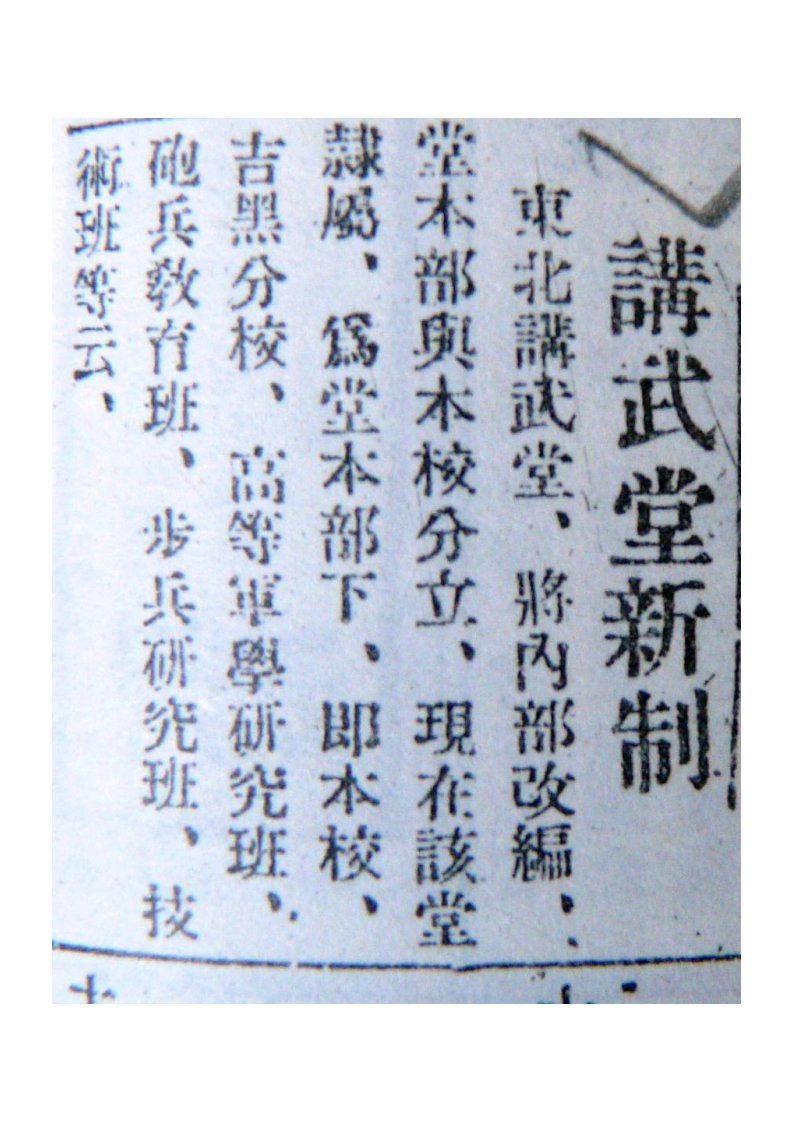 講武堂新制
東北講武堂、將內部改編、
堂本部與本校分立、現在該堂
隷屬、爲堂本部下、即本校、
吉黑分校、高等軍學研究班、
砲兵敎育班、步兵研究班、技
術班等云、